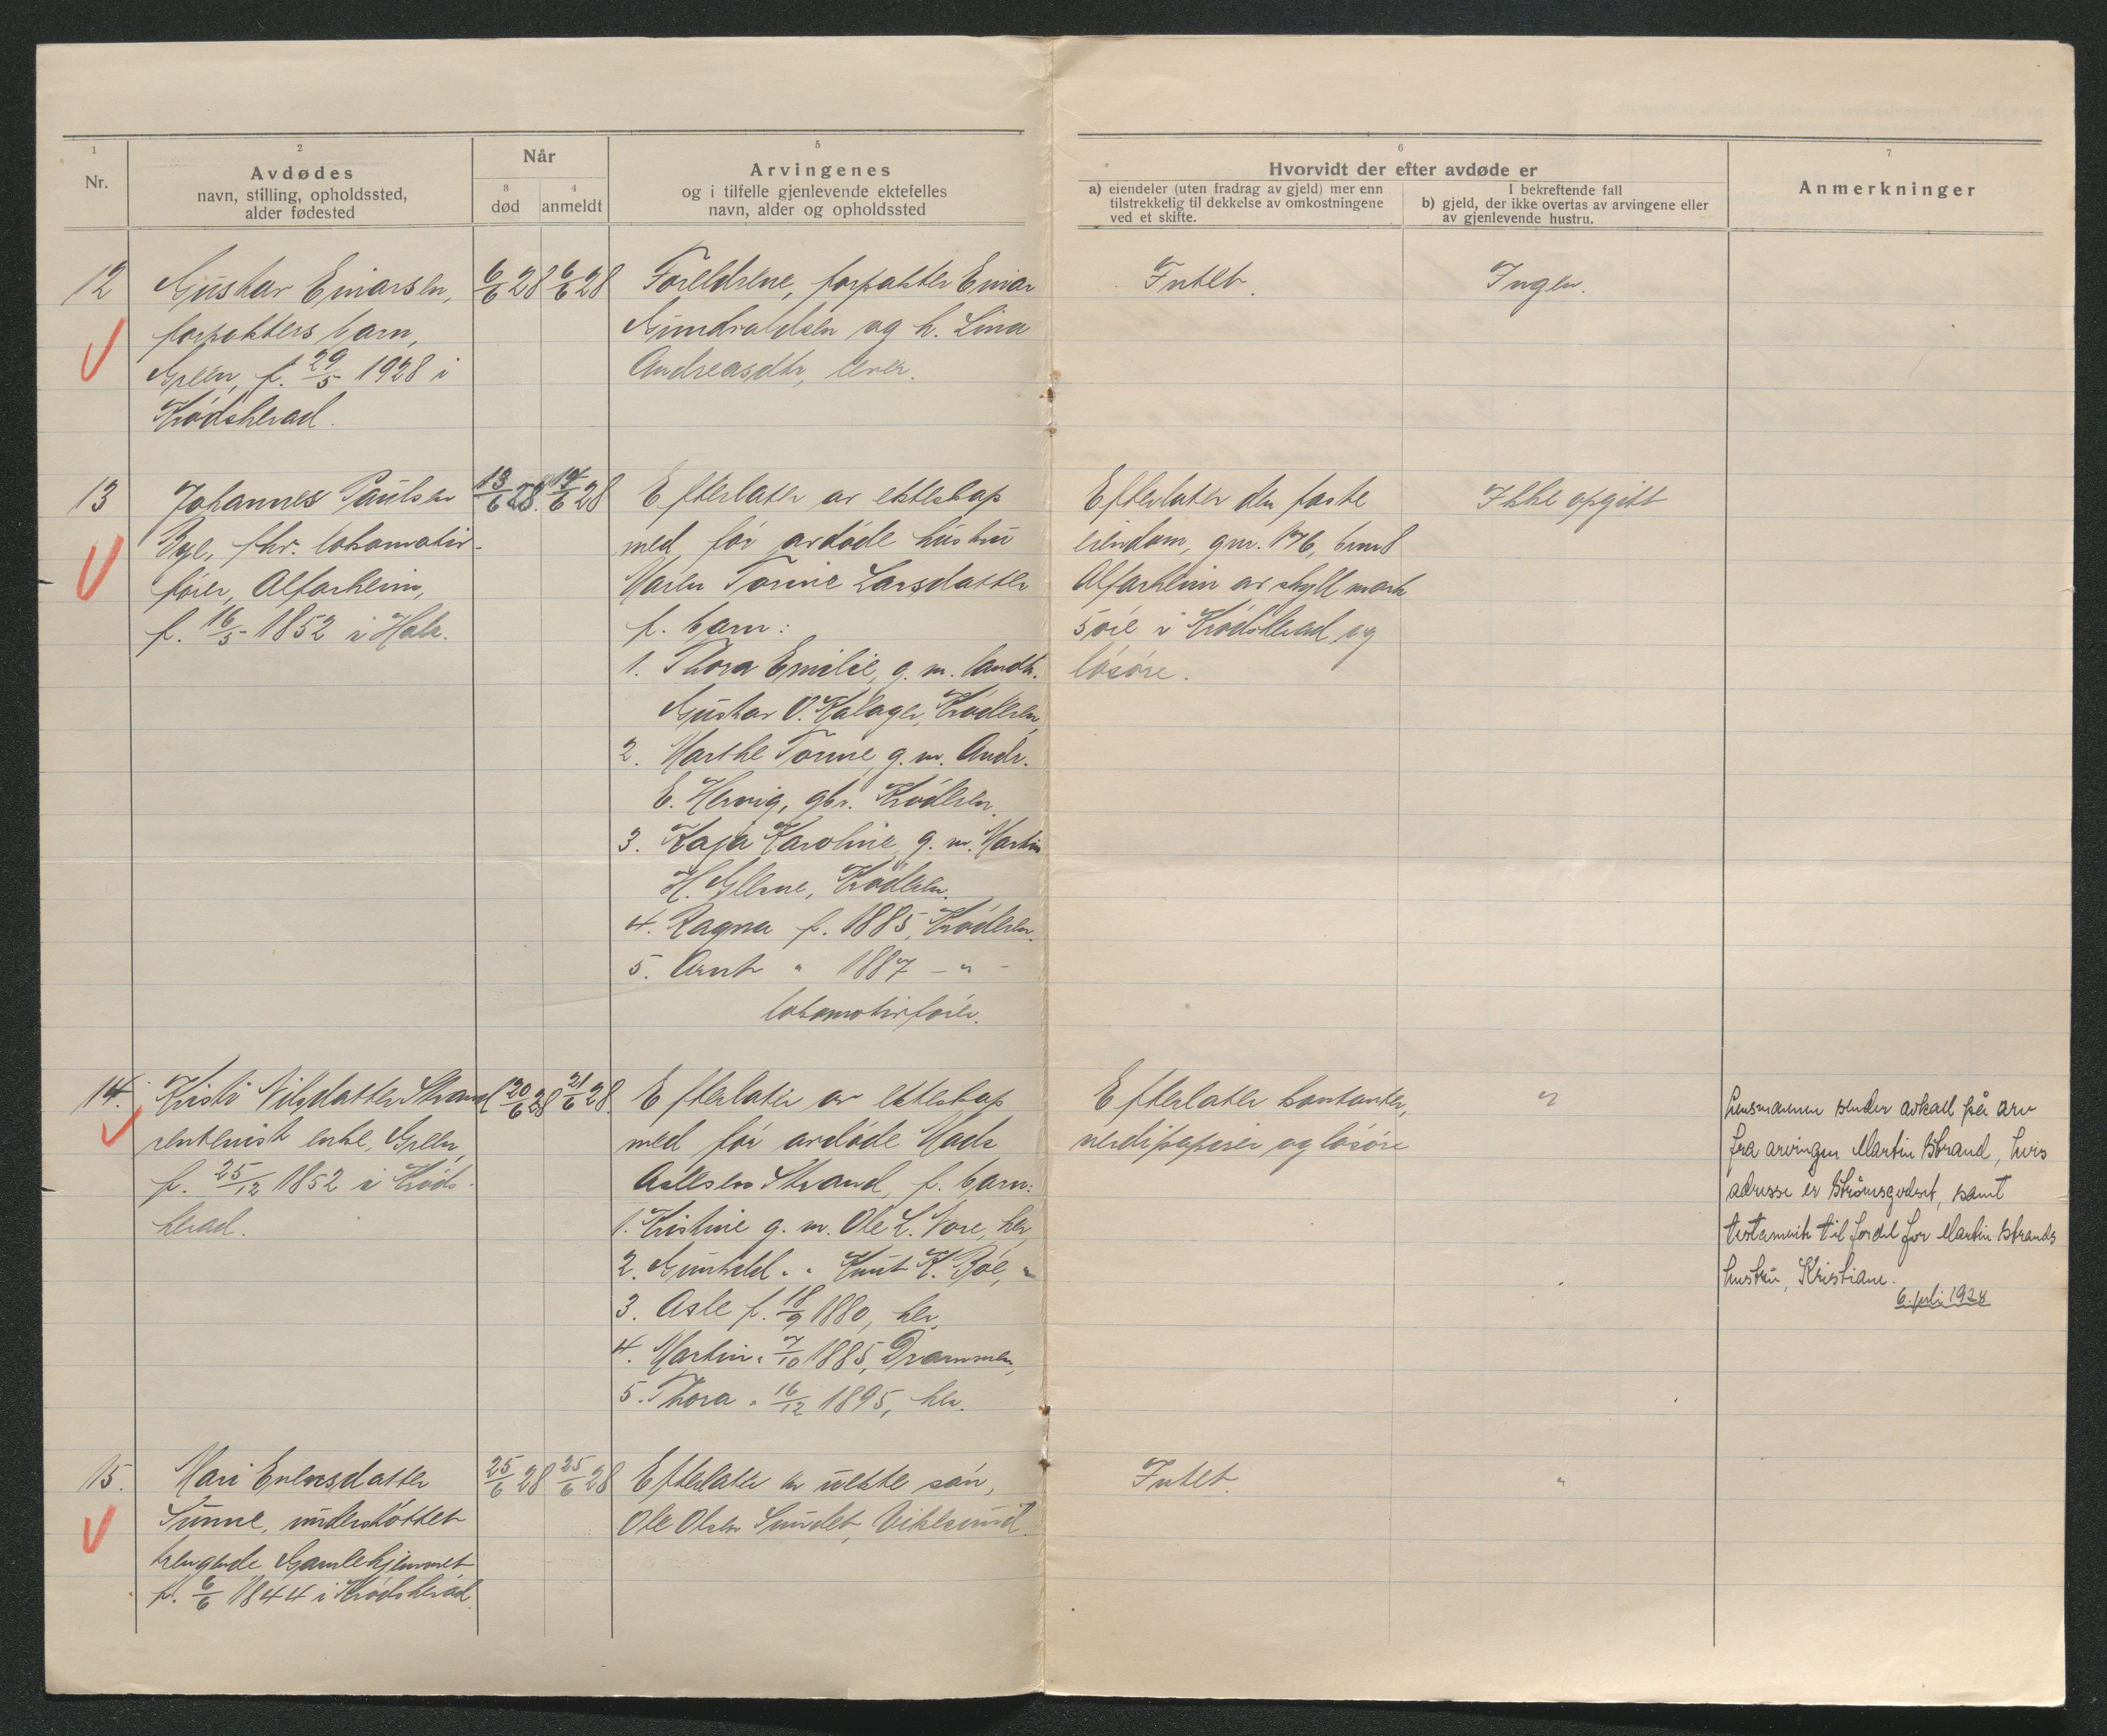 1
2
Avdødes
navn, stilling, opholdssted,
alder fødested
Nr.
Når
3
død
4
anmeldt
5
Arvingenes
og i tilfelle gjenlevende ektefelles
navn, alder og opholdssted
6
Hvorvidt der efter avdøde er
a) eiendeler (uten fradrag av gjeld) mer enn
tilstrekkelig til dekkelse av omkostningene
ved et skifte.
I bekreftende fall
b) gjeld, der ikke overtas av arvingene eller
av gjenlevende hustru.
7
Anmerkninger
12
Gustav Einarsen,
forpakters barn,
Green, f. 29/5 1928 i
Krødsherad.
6/6 28
6/6 28
Foreldrene, forpakter Einar
Gundvaldsen og h. Lina
Andreasdtr, lever.
Intet.
Ingen.
13
Johannes Paulsen
Bye, fhv. lokomotiv-
fører, Alfarheim,
f. 16/5 1852 i Hole.
13/6 28.
14/6 28
Efterlater av ekteskap
med før avdøde hustru
Maren Torine Larsdatter
f. barn:
1. Thora Emilie, g. m. landh.
Gustav O. Kalager, Krøderen,
2. Marthe Torine g. m. Andr.
E. Hervig, gbr. Krøderen.
3. Kaja Karoline g. m. Martin
H. Glesne, Krøderen.
4. Ragna f. 1885, Krøderen.
5. Arnt " 1887 - " -
lokomotivfører.
Efterlater den faste
eiendom, gnr. 176, brnr 8
Alfarheim av skyll mark
5 øre i Krødsherad og
løsøre.
Ikke opgitt
14.
Kristi Nilsdatter Strand
rentenist enke, Green,
f. 25/12 1852 i Krøds-
herad.
20/6 28
21/6 28.
Efterlater av ekteskap
med før avdøde Mads
Aslesen Strand, f. barn:
1. Kristine g. m. Ole L. Nore, her,
2. Gunhild " " Knut K. Bøe, "
3. Asle f. 18/9 1880, her,
4. Martin " 7/10 1885, Drammen,
5. Thora " 16/12 1895, her.
Efterlater kontanter,
verdipapirer og løsøre
"
Lensmannen sender avkall på arv
fra arvingen Martin Strand, hvis
adresse er Strømsgodset, samt
testamente til fordel for Martin Strands
hustru, Kristiane.
6. juli 1928
15.
Mari Evensdatter
Sunne, understøttet
trengende, Gamlehjemmet,
f. 6/6 1844 i Krødsherad.
25/6 28
25/6 28
Efterlater en uekte søn,
Ole Olsen Sundet, Vikesund.
Intet.
"